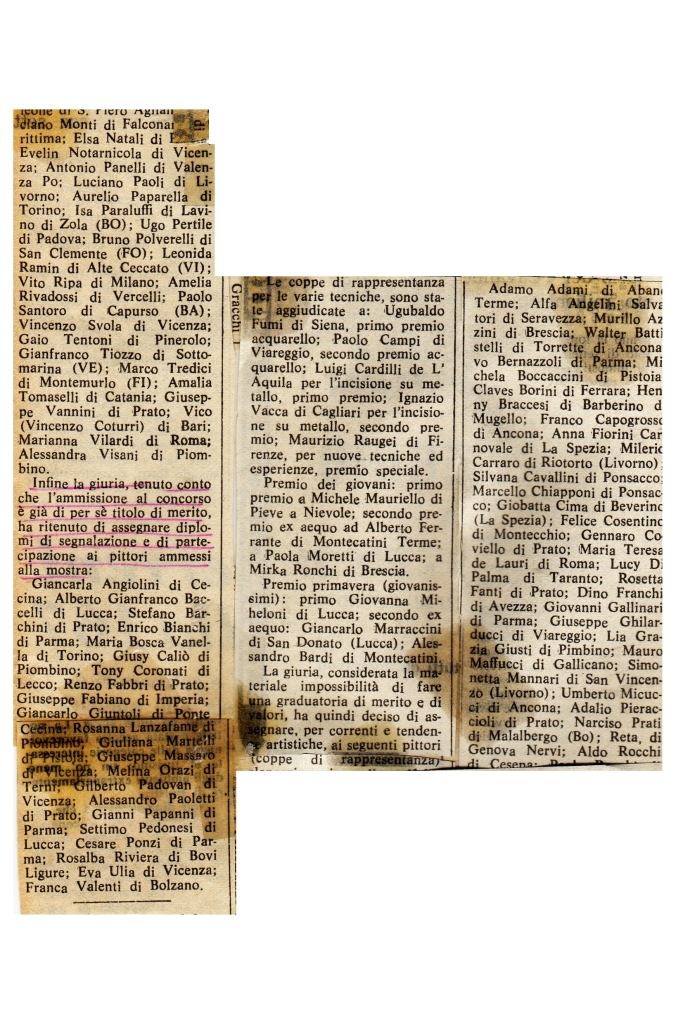 leone di S. Piero Aglian
ciano Monti di Falconar
rittima; Elsa Natali di
Evelin Notarnicola di Vicen-
za; Antonio Panelli di Valen-
za Po; Luciano Paoli di Li-
vorno; Aurelio Paparella di
Torino; Isa Paraluffi di Lavi-
no di Zola (BO); Ugo Pertile
di Padova; Bruno Polverelli di
San Clemente (FO); Leonida
Ramin di Alte Ceccato (VI);
Vito Ripa di Milano; Amelia
Rivadossi di Vercelli; Paolo
Santoro di Capurso (BA);
Vincenzo Svola di Vicenza;
Gaio Tentoni di Pinerolo;
Gianfranco Tiozzo di Sotto-
marina (VE); Marco Tredici
di Montemurlo (FI); Amalia
Tomaselli di Catania; Giusep-
pe Vannini di Prato; Vico
(Vincenzo Coturri) di Bari;
Marianna Vilardi di Roma;
Alessandra Visani di Piom-
bino.
Infine la giuria, tenuto conto
che l'ammissione al concorso
è già di per sè titolo di merito,
ha ritenuto di assegnare diplo-
mi di segnalazione e di parte-
cipazione ai pittori ammessi
alla mostra:
Giancarla Angiolini di Ce-
cina; Alberto Gianfranco Bac-
celli di Lucca; Stefano Bar-
chini di Prato; Enrico Bianchi
di Parma; Maria Bosca Vanel-
la di Torino; Giusy Caliò di
Piombino; Tony Coronati di
Lecco; Renzo Fabbri di Prato;
Giuseppe Fabiano di Imperia;
Giancarlo Giuntoli di Ponte
Cecina; Rosanna Lanzafame di
Piombino; Giuliana Martelli
di Pistoia; Giuseppe Massaro
di Vicenza; Melina Orazi di
Terni; Gilberto Padovan di
Vicenza; Alessandro Paoletti
di Prato; Gianni Papanni di
Parma; Settimo Pedonesi di
Lucca; Cesare Ponzi di Par-
ma; Rosalba Riviera di Bovi
Ligure; Eva Ulia di Vicenza;
Franca Valenti di Bolzano.
Gracchi
Le coppe di rappresentanza
per le varie tecniche, sono sta-
te aggiudicate a: Ugubaldo
Fumi di Siena, primo premio
acquarello; Paolo Campi di
Viareggio, secondo premio ac-
quarello; Luigi Cardilli de L'
Aquila per l'incisione su me-
tallo, primo premio; Ignazio
Vacca di Cagliari per l'incisio-
ne su metallo, secondo pre-
mio; Maurizio Raugei di Fi-
renze, per nuove tecniche ed
esperienze, premio speciale.
Premio dei giovani: primo
premio a Michele Mauriello di
Pieve a Nievole; secondo pre-
mio ex aequo ad Alberto Fer-
rante di Montecatini Terme;
a Paola Moretti di Lucca; a
Mirka Ronchi di Brescia.
Premio primavera (giovanis-
simi): primo Giovanna Mi-
cheloni di Lucca; secondo ex
aequo: Giancarlo Marraccini
di San Donato (Lucca); Ales-
sandro Bardi di Montecatini.
La giuria, considerata la ma-
teriale impossibilità di fare
una graduatoria di merito e di
valori, ha quindi deciso di as-
segnare, per correnti e tenden-
ze artistiche, ai seguenti pittori
(coppe di rappresentanza)
Adamo Adami di Aban
Terme; Alfa Angelini Salva
tori di Seravezza; Murillo Az
zini di Brescia; Walter Batti
stelli di Torrette di Ancona
vo Bernazzoli di Parma; Mi
chela Boccaccini di Pistoia
Claves Borini di Ferrara; Hen
ny Braccesi di Barberino d
Mugello; Franco Capogrosso
di Ancona; Anna Fiorini Car
novale di La Spezia; Mileric
Carraro di Riotorto (Livorno)
Silvana Cavallini di Ponsacco;
Marcello Chiapponi di Ponsac-
co; Giobatta Cima di Beverino
(La Spezia); Felice Cosentino
di Montecchio; Gennaro Co-
viello di Prato; Maria Teresa
de Lauri di Roma; Lucy Di
Palma di Taranto; Rosetta
Fanti di Prato; Dino Franchi
di Avezza; Giovanni Gallinari
di Parma; Giuseppe Ghilar-
ducci di Viareggio; Lia Gra-
zia Giusti di Pimbino; Mauro
Maffucci di Gallicano; Simo-
netta Mannari di San Vincen-
zo (Livorno); Umberto Micuc-
ci di Ancona; Adalio Pierac-
cioli di Prato; Narciso Prati
di Malalbergo (Bo); Reta, di
Genova Nervi; Aldo Rocchi
di Cesena;